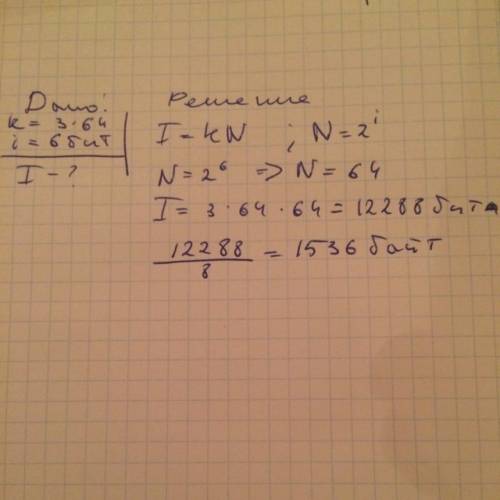 Дано:
k = 3·64
i = 6 бит
I - ?
Решение
I = kN ; N = 2^i
N = 2^6 => N = 64
I = 3·64·64 = 12288 бита
12288/8 = 1536 байт